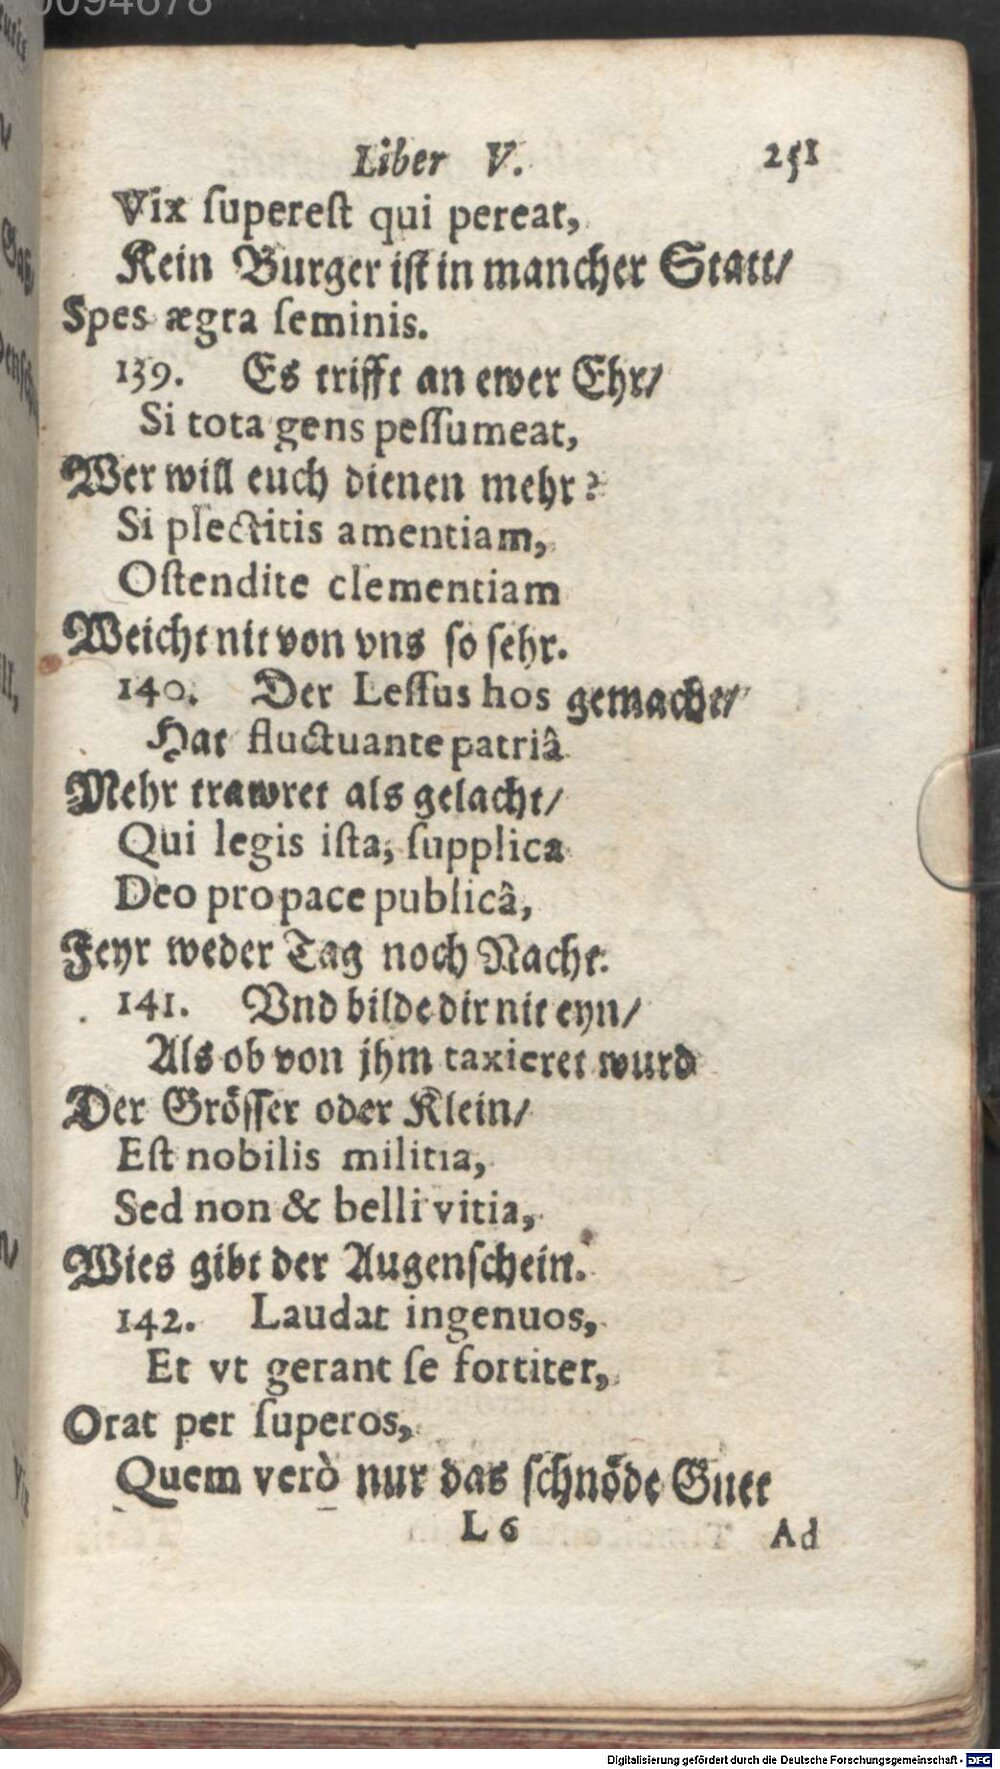 0094678
Liber V. 251
Vix ſupereſt qui pereat,
Kein Burger iſt in mancher Statt/
Spes ægra ſeminis.
139. Es trifft an ewer Ehr/
Si tota gens peſſumeat,
Wer will euch dienen mehr?
Si plectitis amentiam,
Oſtendite clementiam
Weicht nit von vns ſo ſehr.
140. Der Leſſus hos gemacht/
Hat fluctuante patriâ
Mehr trawret als gelacht/
Qui legis iſta, ſupplica
Deo pro pace publicâ,
Feyr weder Tag noch Nacht.
141. Vnd bilde dir nit eyn/
Als ob von jhm taxieret wurd
Der Gröſſer oder Klein/
Eſt nobilis militia,
Sed non & belli vitia,
Wies gibt der Augenſchein.
142. Laudat ingenuos,
Et vt gerant ſe fortiter,
Orat per ſuperos,
Quem verò nur das ſchnöde Guet
L 6 Ad
Digitalisierung gefördert durch die Deutsche Forschungsgemeinschaft - DFG